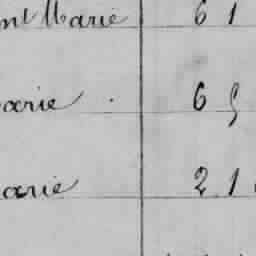 nt Marie 61
arie . 65
arie 21